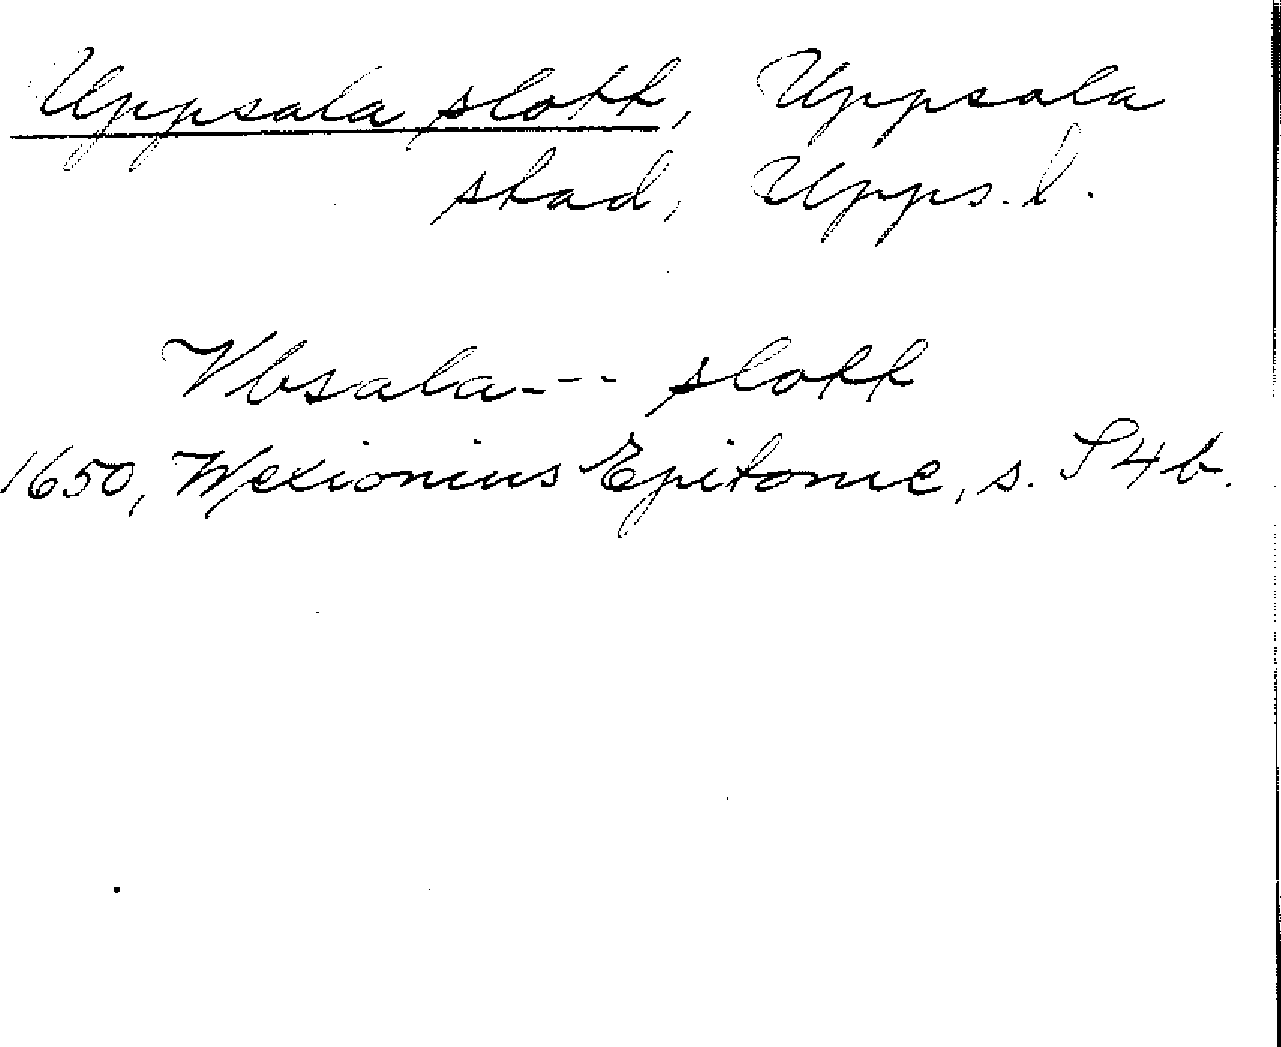 Uppsala slott, Uppsala
stad, Upps. l.
Vbsala--- slott
1650, Wexionius Epitome, s. S4b.